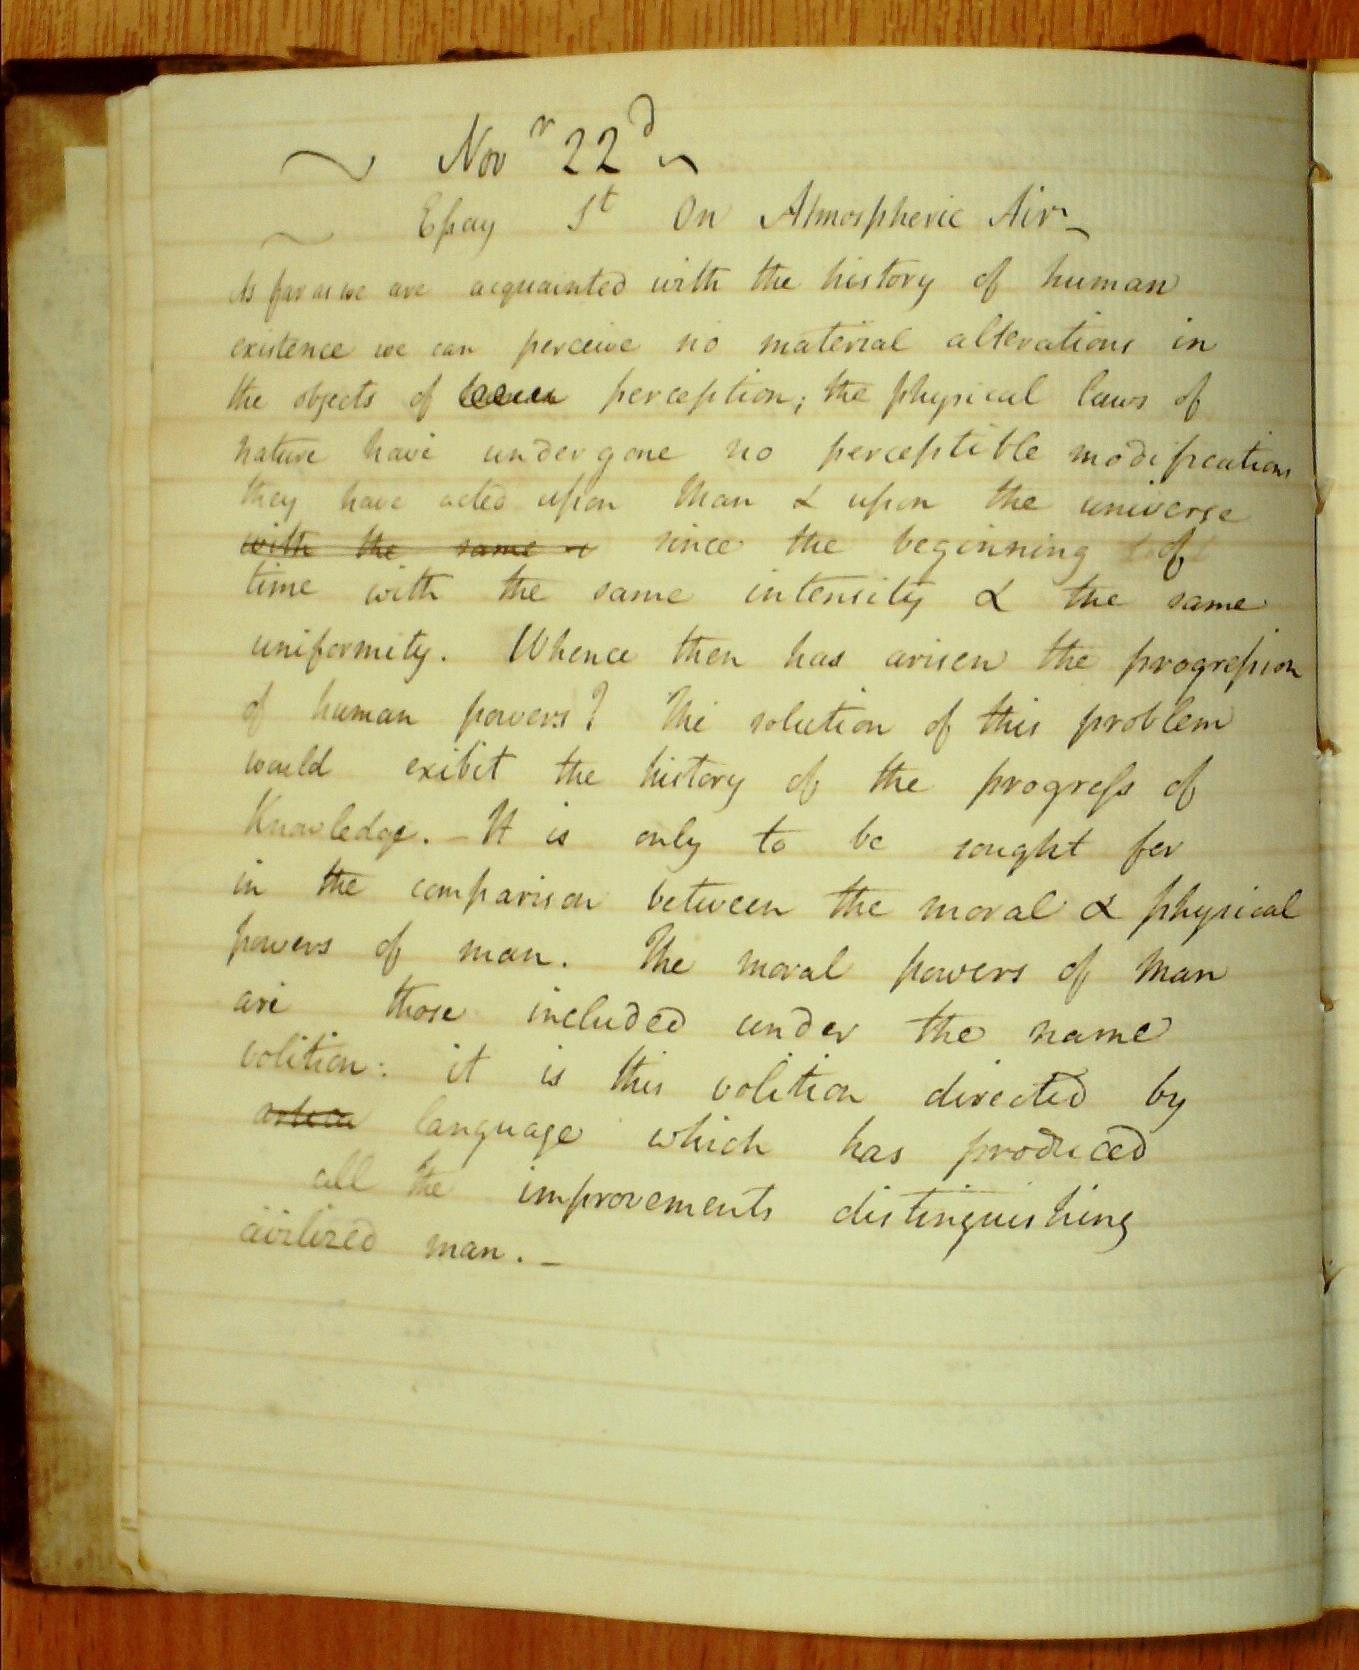 Novr 22d
Eſsay 1st On Atmospheric Air
As far as we are acquainted with the history of human
existence we can perceive no material alterations in
the objects of perception; the physical laws of
nature have undergone no perceptible modifications
they have acted upon Man & upon the universe
with the same since the beginning of
time with the same intensity & the same
uniformity. Whence then has arisen the progreſsion
of human powers? The solution of this problem
would exibit the history of the progreſs of
Knowledge. – It is only to be sought for
in the comparison between the moral & physical
powers of man. The moral powers of Man
are those included under the name
volition: it is this volition directed by
language which has produced
all the improvements distinguishing
civilized man. –